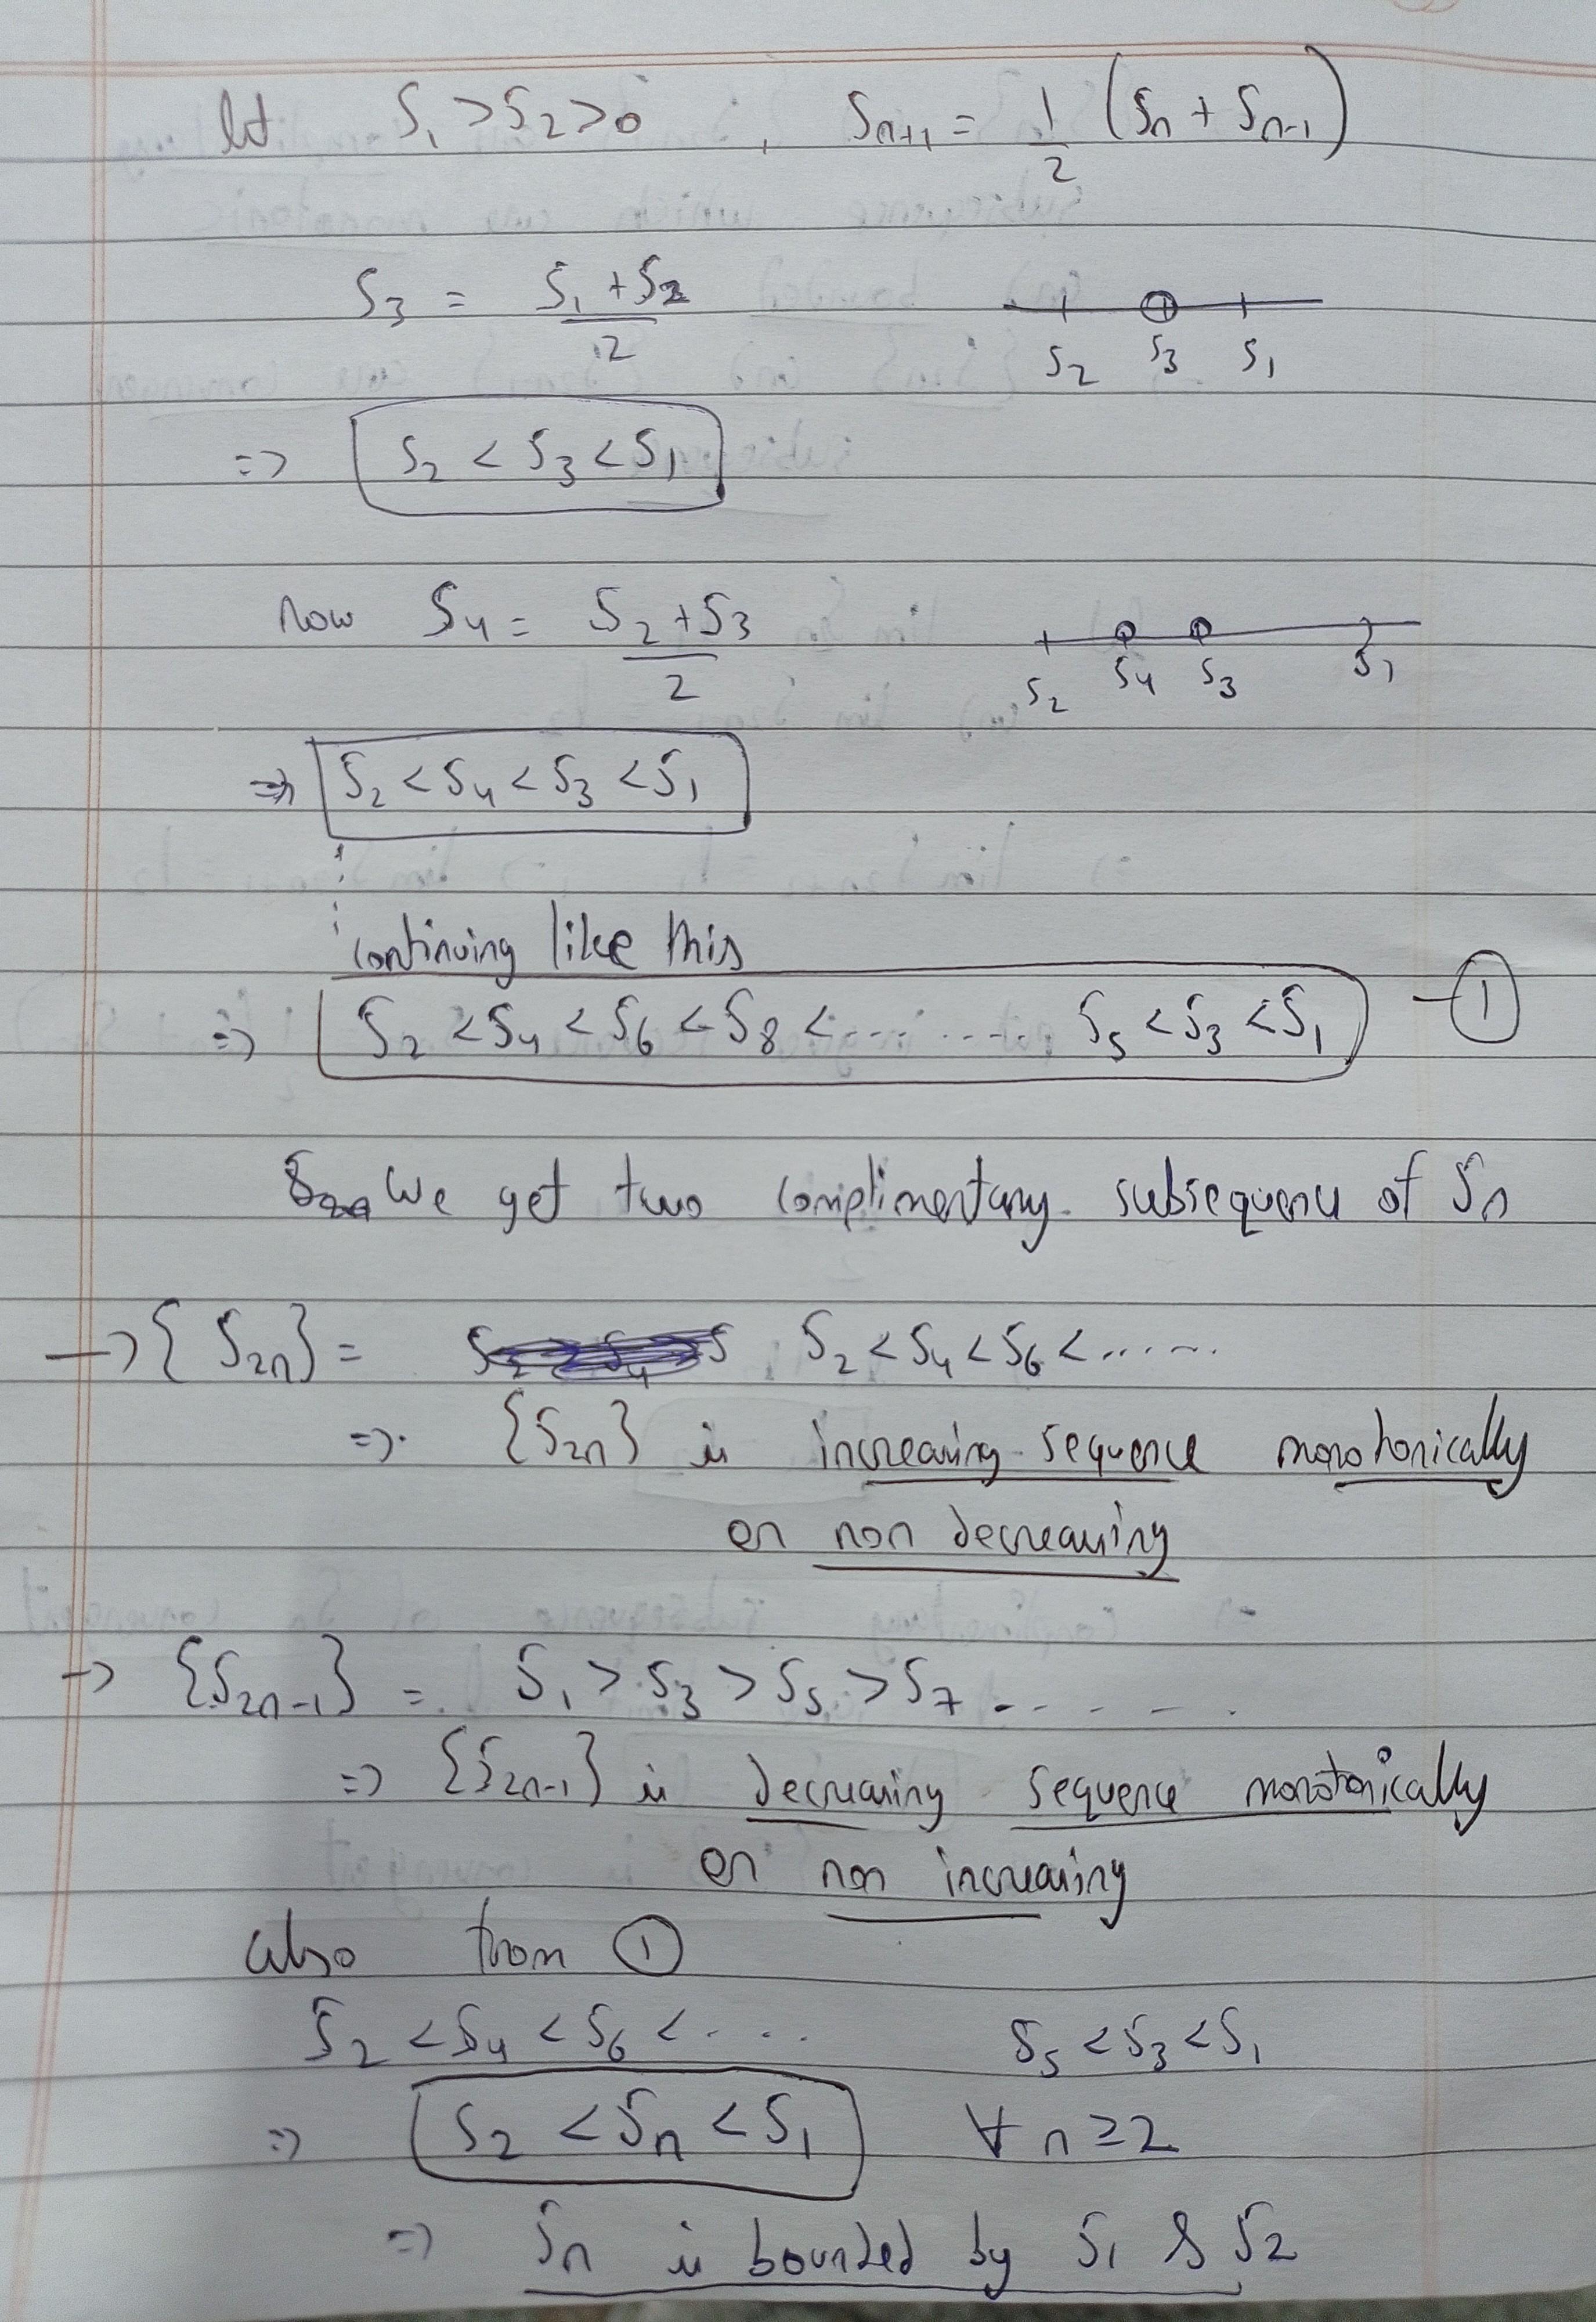 let S₁ > S₂ > 0 , Sₙ₊₁ = 1/2 (Sₙ + Sₙ₋₁)
S₃ = (S₁ + S₂)/2
S₂ S₃ S₁
=> S₂ < S₃ < S₁
now S₄ = (S₂ + S₃)/2
S₂ S₄ S₃ S₁
=> S₂ < S₄ < S₃ < S₁
continuing like this
=> S₂ < S₄ < S₆ < S₈ < .......... S₅ < S₃ < S₁ — ①
We get two complimentary subsequence of Sₙ
→ {S₂ₙ} = S₂ < S₄ < S₆ < ......
=> {S₂ₙ} is increasing sequence monotonically
or non decreasing
→ {S₂ₙ₋₁} = S₁ > S₃ > S₅ > S₇ - - - - .
=> {S₂ₙ₋₁} is decreasing sequence monotonically
or non increasing
also from ①
S₂ < S₄ < S₆ < .... S₅ < S₃ < S₁
=> S₂ < Sₙ < S₁ ∀ n ≥ 2
=> Sₙ is bounded by S₁ & S₂